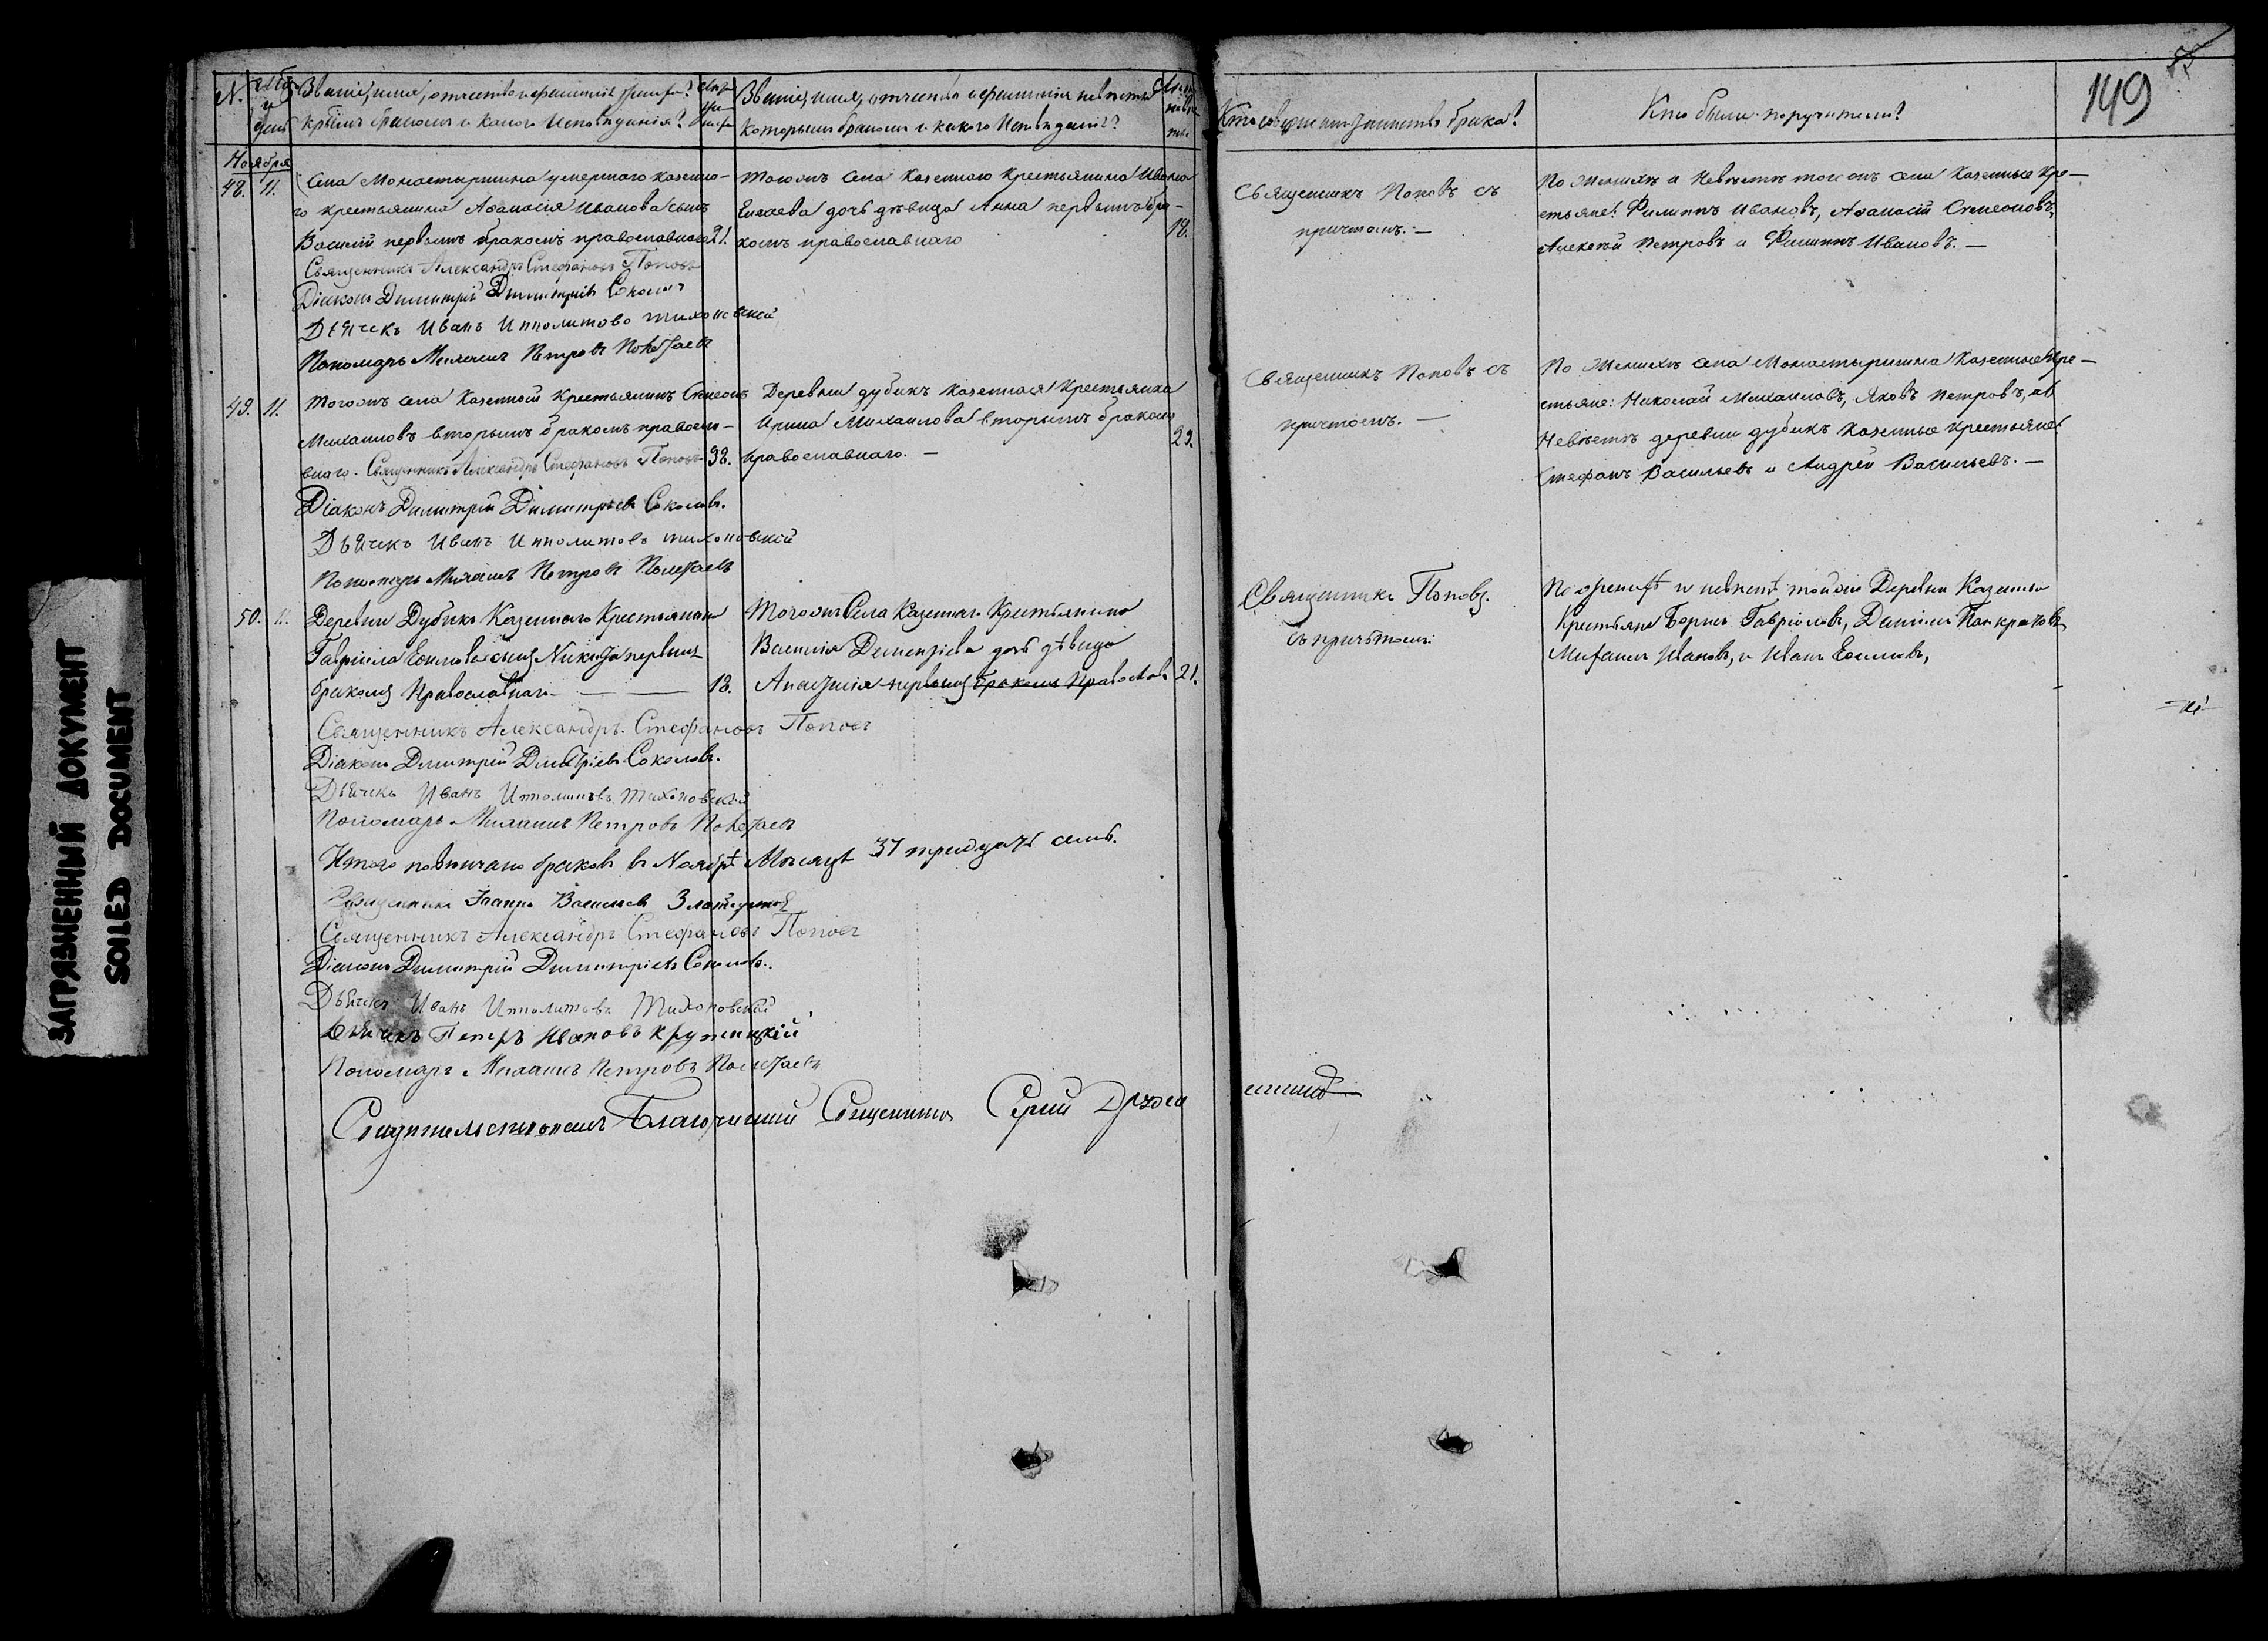 ЗАГРЯЗНЕННЫЙ ДОКУМЕНТ
SOILED DOCUMENT
149
№.
и
день
Званіе, имя, отчество и фамилія жениха?
крымъ бракомъ и какого Исповѣданія?
Званіе, имя, отчество и фамилія невѣсты
Которымъ бракомъ и какого Исповѣданія?
Кто совершалъ таинство брака?
Кто были поручители?
Ноября
48. 11.
Села Монастырщина умершаго казенна-
го крестьянина Аѳанасія Иванова сынъ
Василій первымъ бракомъ православнаго 21.
Священникъ Александръ Стефановъ Поповъ
Діаконъ Димитрій Димитріевъ Соколовъ
Дьячекъ Иванъ Ипполитовъ Тихоновскій
Пономарь Михаилъ Петровъ
Тогожъ села казеннаго крестьянина Ивана
дочь дѣвица Анна первымъ бра-
комъ православнаго 18.
Священникъ Поповъ съ
причтомъ. —
По Женихѣ и Невѣстѣ тогожъ села казенные кре-
стьяне: Филиппъ Ивановъ, Аѳанасій Симеоновъ,
Алексѣй Петровъ и Филиппъ Ивановъ. —
49. 11.
Тогожъ села Казенный Крестьянинъ Симеонъ
Михаиловъ вторымъ бракомъ правосла-
внаго. Священникъ Александръ Стефановъ Поповъ 38.
Діаконъ Димитрій Димитріевъ Соколовъ.
Дьячекъ Иванъ Ипполитовъ Тихоновскій
Пономарь Михаилъ Петровъ
Деревни Дубикъ казенная Крестьянка
Ирина Михаилова вторымъ бракомъ
православнаго. — 29.
Священникъ Поповъ съ
причтомъ. —
По Женихѣ села Монастырщина Казенные Кре-
стьяне: Николай Михаиловъ, Яковъ Петровъ, по
Невѣстѣ деревни Дубикъ казенные Крестьяне
Стефанъ Васильевъ и Андрей Васильевъ. —
50. 11.
Деревни Дубикъ Казеннаго Крестьянина
Гавріила сынъ Никита первымъ
бракомъ Православнаго — 18.
Священникъ Александръ Стефановъ Поповъ
Діаконъ Димитрій Димитріевъ Соколовъ.
Дьячекъ Иванъ Ипполитовъ Тихоновскій
Пономарь Михаилъ Петровъ
Тогожъ Села Казеннаго Крестьянина
Василія Дементіева дочь дѣвица
Анастасія первымъ бракомъ Православ. 21.
Священникъ Поповъ.
съ причтомъ.
По женихѣ и невѣстѣ тойже Деревни Казенные
Крестьяне Борисъ Гавріиловъ, Даніилъ Панкратовъ
Михаилъ Ивановъ, и Иванъ
Итого повѣнчано браковъ въ Ноябрѣ Мѣсяцѣ 37 тридцать семь.
Священникъ Іоаннъ Васильевъ
Священникъ Александръ Стефановъ Поповъ
Діаконъ Димитрій Димитріевъ Соколовъ.
Дьячекъ Иванъ Ипполитовъ Тихоновскій
Дьячекъ Петръ Ивановъ Крутицкій
Пономарь Михаилъ Петровъ
Благочинный Священникъ